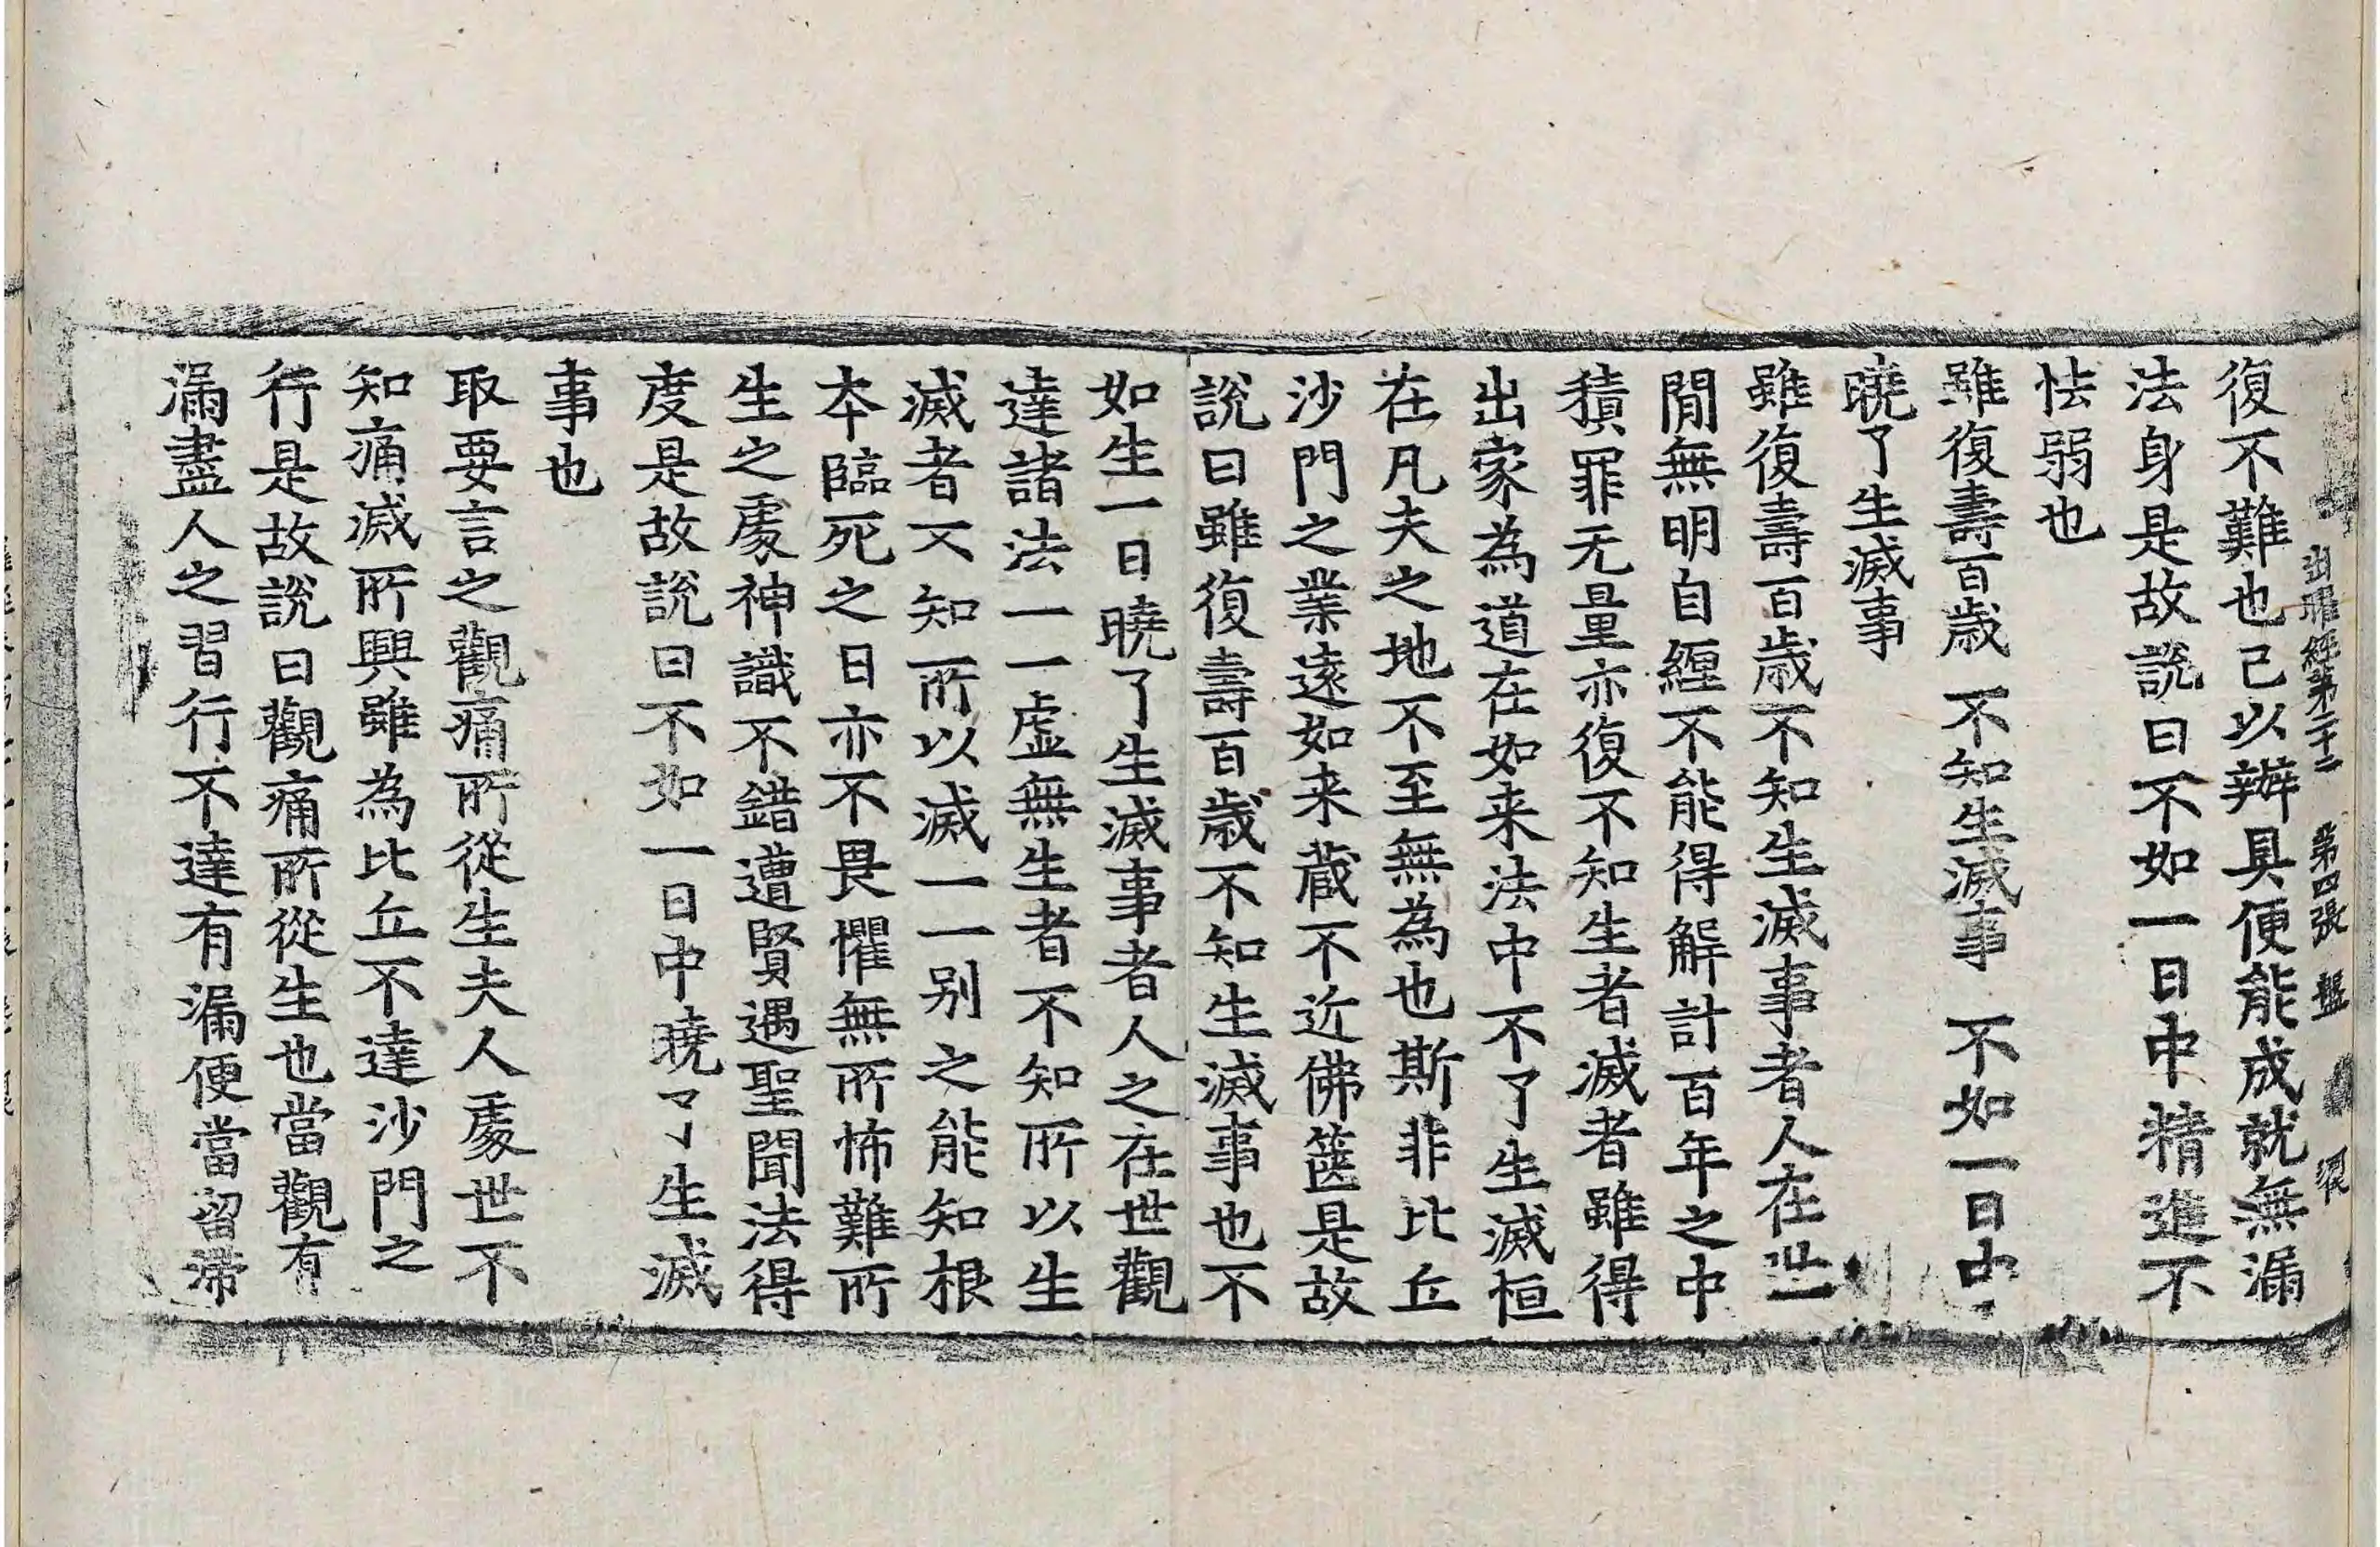 出曜經第二十二 第四張 盤
復不難也己以辦具便能成就無漏
法身是故說曰不如一日中精進不
怯弱也
雖復壽百歲 不知生滅事 不如一日中
曉了生滅事
雖復壽百歲不知生滅事者人在世一
閒無明自纏不能得解計百年之中
積罪无量亦復不知生者滅者雖得
出家為道在如来法中不了生滅桓
在凡夫之地不至無為也斯非比丘
沙門之業遠如来蔵不近佛篋是故
說曰雖復壽百歲不知生滅事也不
如生一日曉了生滅事者人之在世觀
達諸法一一虛無生者不知所以生
滅者不知所以滅一一別之能知根
本臨死之日亦不畏懼無所怖難所
生之處神識不錯遭賢遇聖聞法得
度是故說曰不如一日中曉了生滅
事也
取要言之觀痛所從生夫人處世不
知痛滅所興雖為比丘不達沙門之
行是故說曰觀痛所從生也當觀有
漏盡人之習行不達有漏便當留滯